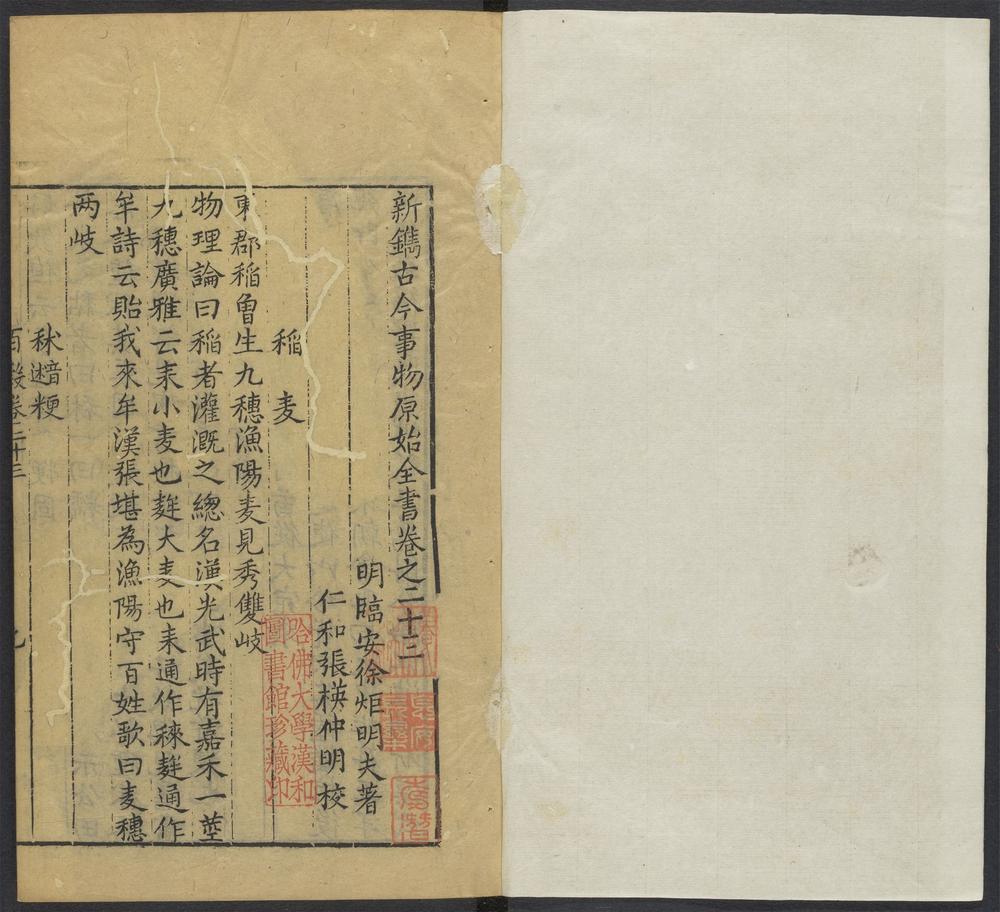 新鐫古今事物原始全書卷之二十三
明臨安徐炬明夫著
仁和張楧仲明校
稻 麦
東郡稻曾生九穗漁陽麦見秀雙岐
物理論曰稻者灌溉之總名漢光武時有嘉禾一莖
九穗廣雅云来小麦也麰大麦也来通作䅘麰通作
牟詩云貽我來牟漢張堪為漁陽守百姓歌曰麦穗
两岐
秫 粳
百穀卷二十三
哈佛大學漢和
圖書館珍藏印